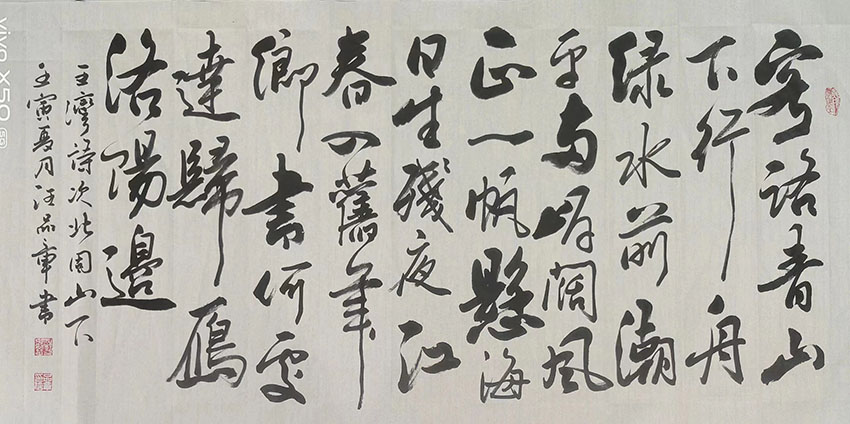 客路青山
下行舟
绿水前潮
平兩岸闊風
正一帆懸海
日生殘夜江
春入舊年
鄉書何處
達歸鴈
洛陽邊
王灣詩次北固山下
壬寅夏月汪品章書
vivo X50 5G